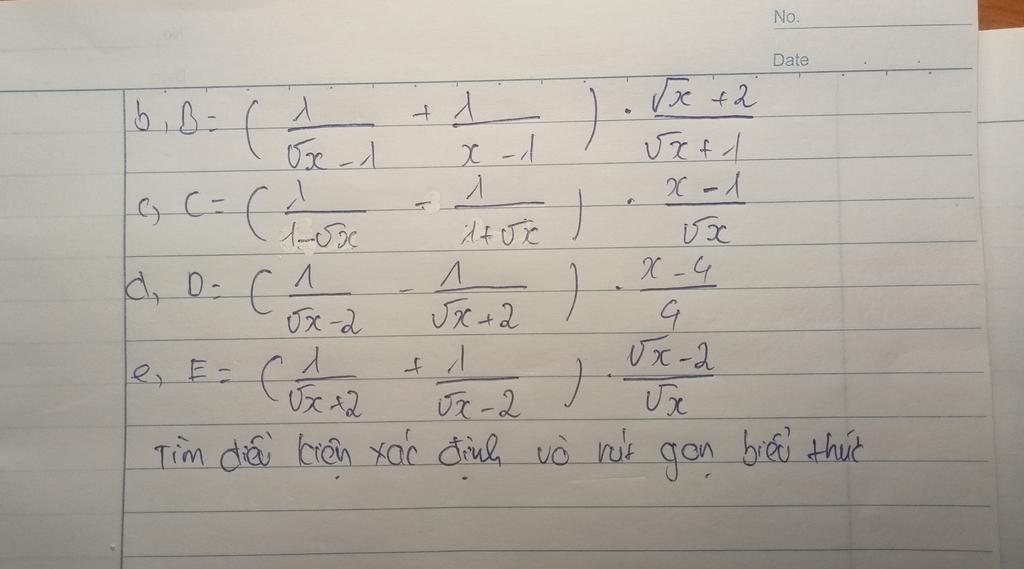 No.
Date
b, B = ( 1/(√x - 1) + 1/(x - 1) ) . (√x + 2)/(√x + 1)
c, C = ( 1/(1 - √x) - 1/(1 + √x) ) . (x - 1)/√x
d, D = ( 1/(√x - 2) - 1/(√x + 2) ) . (x - 4)/4
e, E = ( 1/(√x + 2) + 1/(√x - 2) ) . (√x - 2)/√x
Tìm điều kiện xác định và rút gọn biểu thức